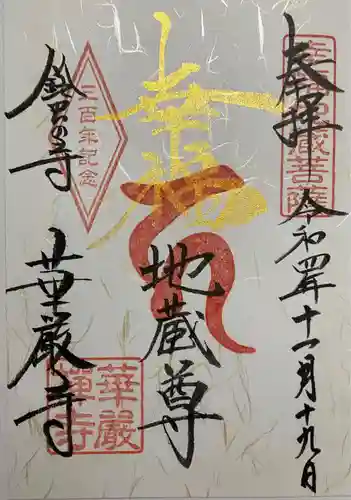 奉拝
令和四年十一月十九日
幸福地蔵菩薩
幸福
地蔵尊
三百年記念
鈴虫の寺
華厳寺
華厳禅寺